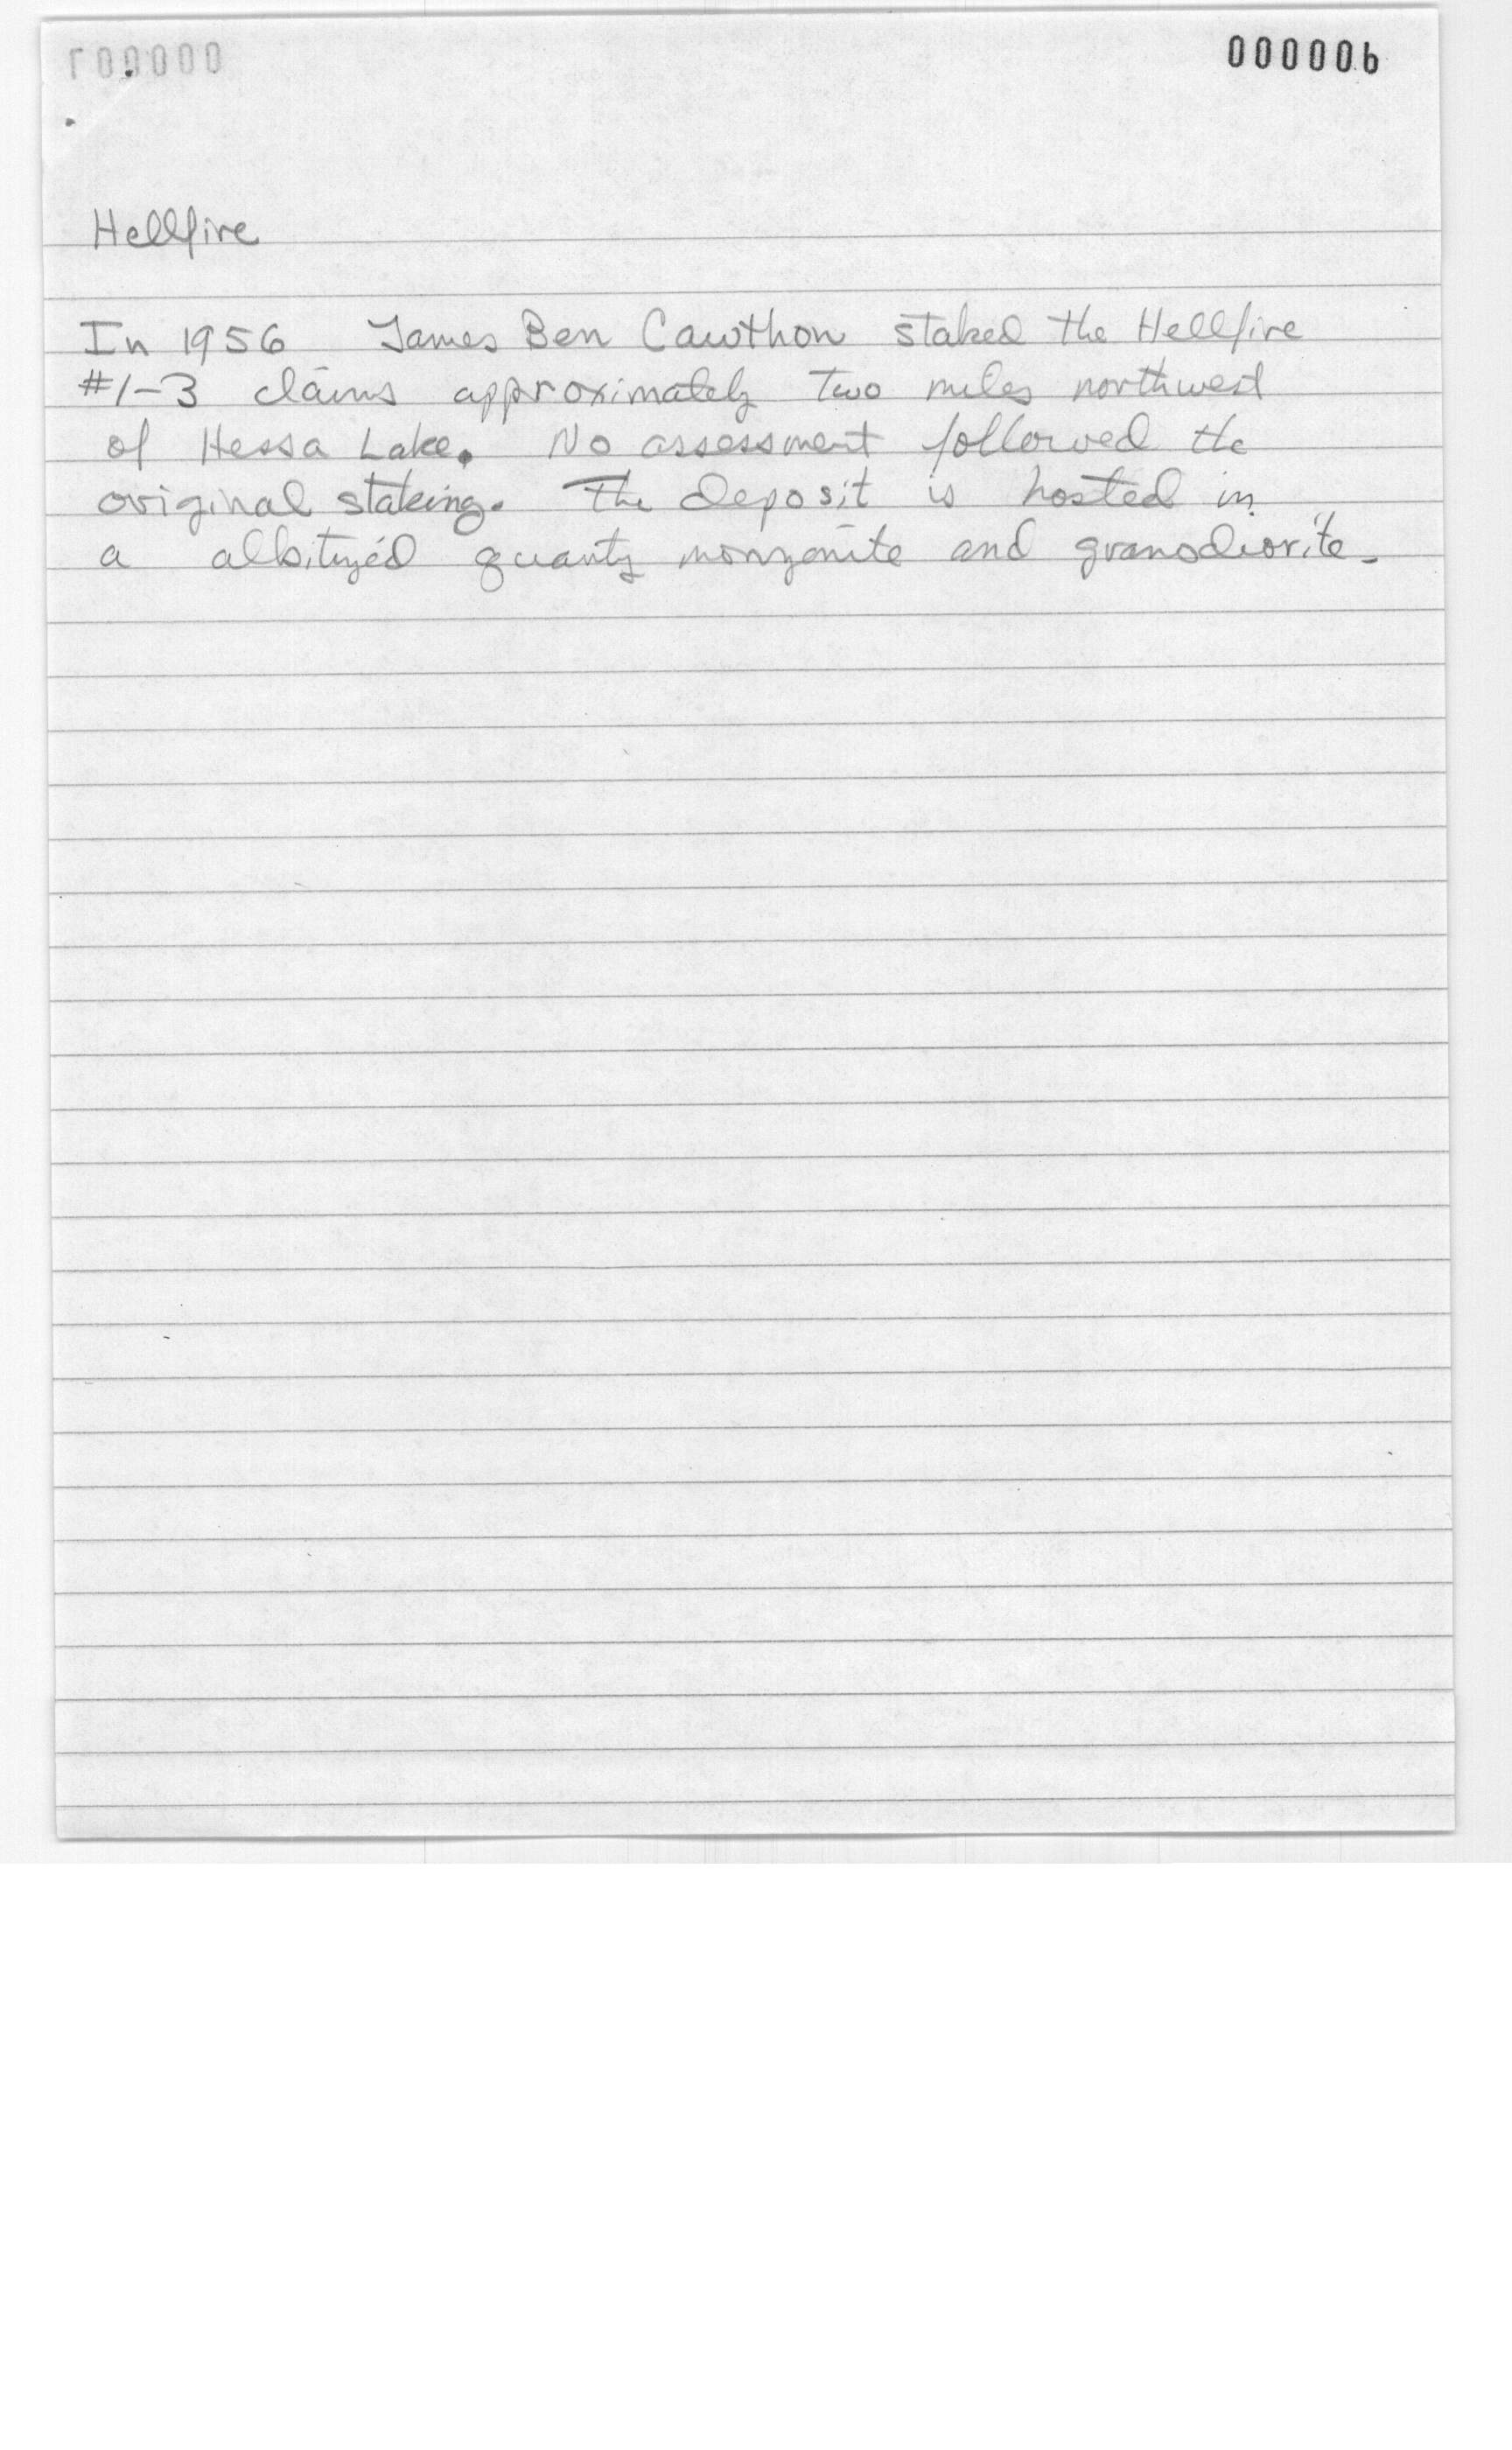 000006
Hellfire
In 1956 James Ben Cawthon staked the Hellfire
#1-3 claims approximately two miles northwest
of Hessa Lake. No assessment followed the
original staking. The deposit is hosted in
a albitized quartz monzonite and granodiorite.